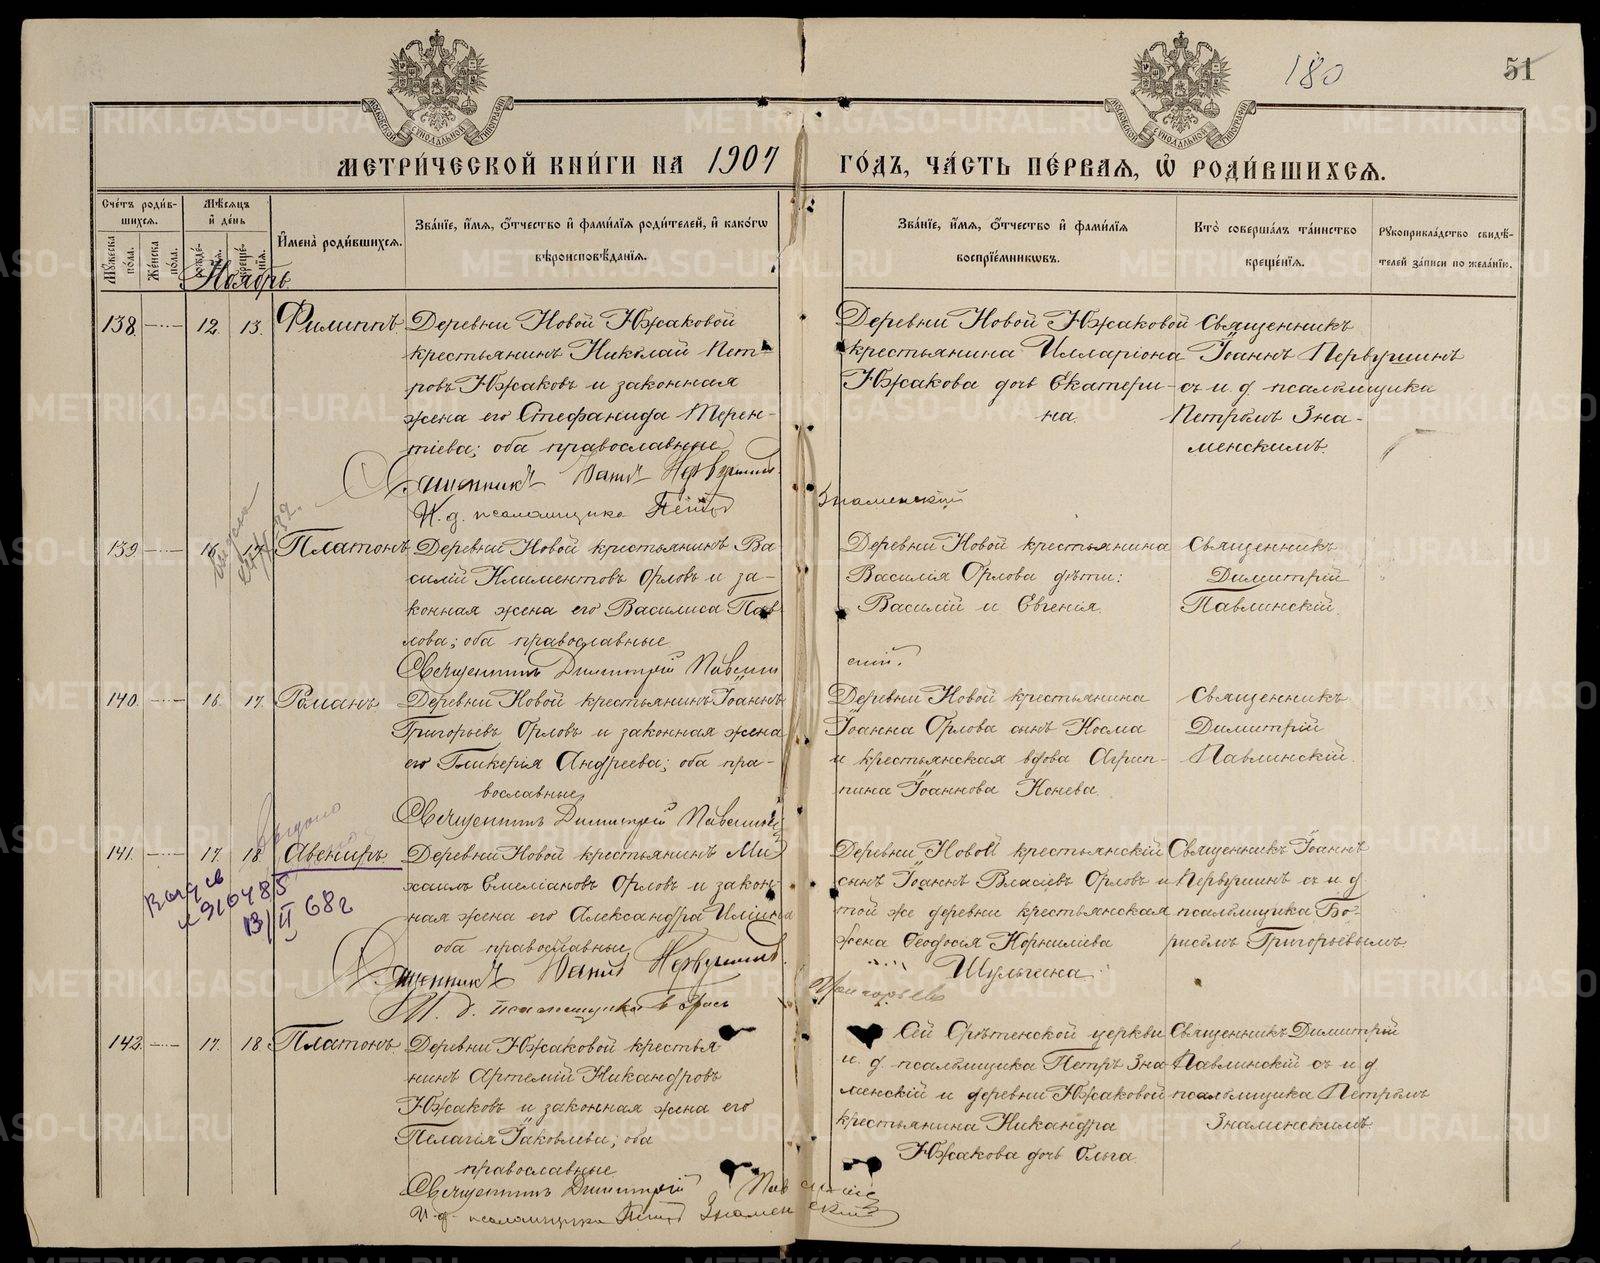 180
51
МЕТРИЧЕСКОЙ КНИГИ НА 1907 ГОДЪ, ЧАСТЬ ПЕРВАЯ, Ѡ РОДИВШИХСѦ.
Счетъ родив-
шихсѧ.
Мꙋжеска пола.
Женска пола.
Мѣсѧцъ
и день
рожде-
нїѧ.
креще-
нїѧ.
Имена родившихсѧ.
Званїе, имѧ, ѻтчество и фамилїѧ родителей, и какогѡ
вѣроисповѣданїѧ.
Званїе, имѧ, ѻтчество и фамилїѧ
воспрїемникѡвъ.
Кто совершалъ таинство
крещенїѧ.
Рꙋкоприкладство свидѣ-
телей записи по желанїю.
Ноябрь
138. 12. 13. Филиппъ
Деревни Новой Южаковой
крестьянинъ Николай Пет-
ровъ Южаковъ и законная
жена его Стефанида Терен-
тіева; оба православные
Деревни Новой Южаковой
крестьянина Илларіона
Южакова дочь Екатери-
на.
Священникъ
Іоаннъ Первушинъ
съ и. д. псаломщика
Петромъ Зна-
менскимъ.
Священникъ Іоаннъ Первушинъ
И. д. псаломщика Петръ Знаменский
139 16. 17. Платонъ
Деревни Новой крестьянинъ Ва
силій Климентовъ Орловъ и за-
конная жена его Василиса Пав
лова; оба православные
Деревни Новой крестьянина
Василія Орлова дѣти:
Василій и Евгенія.
Священникъ
Димитрій
Павлинскій.
Священникъ Димитрій Павлин
ский.
140. 16. 17. Романъ
Деревни Новой крестьянинъ Іоаннъ
Григорьевъ Орловъ и законная жена
его Гликерія Андреева; оба пра-
вославные
Деревни Новой крестьянина
Іоанна Орлова сынъ Косма
и крестьянская вдова Агрип-
пина Іоаннова Конева.
Священникъ
Димитрій
Павлинскій.
Священникъ Димитрій Павлинскій
141. 17. 18. Авениръ
Деревни Новой крестьянинъ Ми
хаилъ Емеліановъ Орловъ и закон-
ная жена его Александра Иліина
оба православные
Деревни Новой крестьянскій
сынъ Іоаннъ Власіевъ Орловъ и
той же деревни крестьянская
жена Ѳеодосія Корниліева
Шульгина.
Священникъ Іоаннъ
Первушинъ съ и. д.
псаломщика Бо-
рисомъ Григорьевымъ.
910485
13/II 68г
Священникъ Іоаннъ Первушинъ.
И. д. псаломщика Борисъ Григорьевъ
142. 17. 18. Платонъ
Деревни Южаковой крестья
нинъ Артемій Никандровъ
Южаковъ и законная жена его
Пелагія Іаковлева; оба
православные
Сей Срѣтенской церкви
и. д. псаломщика Петръ Зна
менскій и деревни Южаковой
крестьянина Никандра
Южакова дочь Ольга.
Священникъ Димитрій
Павлинскій съ и. д.
псаломщика Петромъ
Знаменскимъ.
Священникъ Димитрій Павлинскій
И. д. псаломщика Петръ Знаменский
METRIKI.GASO-URAL.RU